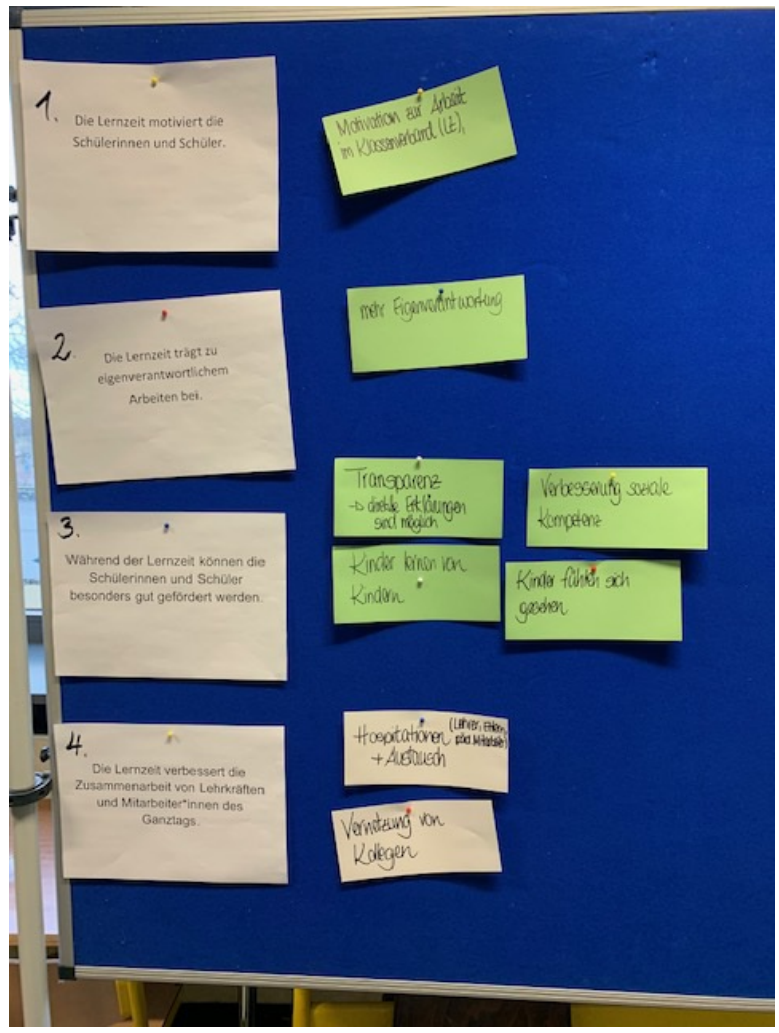 1.
Die Lernzeit motiviert die
Schülerinnen und Schüler.
Motivation zur Arbeit
im Klassenverband (LZ),
2.
Die Lernzeit trägt zu
eigenverantwortlichem
Arbeiten bei.
mehr Eigenverantwortung
3.
Während der Lernzeit können die
Schülerinnen und Schüler
besonders gut gefördert werden.
Transparenz
→ direkte Erklärungen
sind möglich
Verbesserung soziale
Kompetenz
Kinder lernen von
Kindern
Kinder fühlen sich
gesehen
4.
Die Lernzeit verbessert die
Zusammenarbeit von Lehrkräften
und Mitarbeiter*innen des
Ganztags.
Hospitationen
+ Austausch
(Lehrer, Eltern,
päd. Mitarbeiter)
Vernetzung von
Kollegen